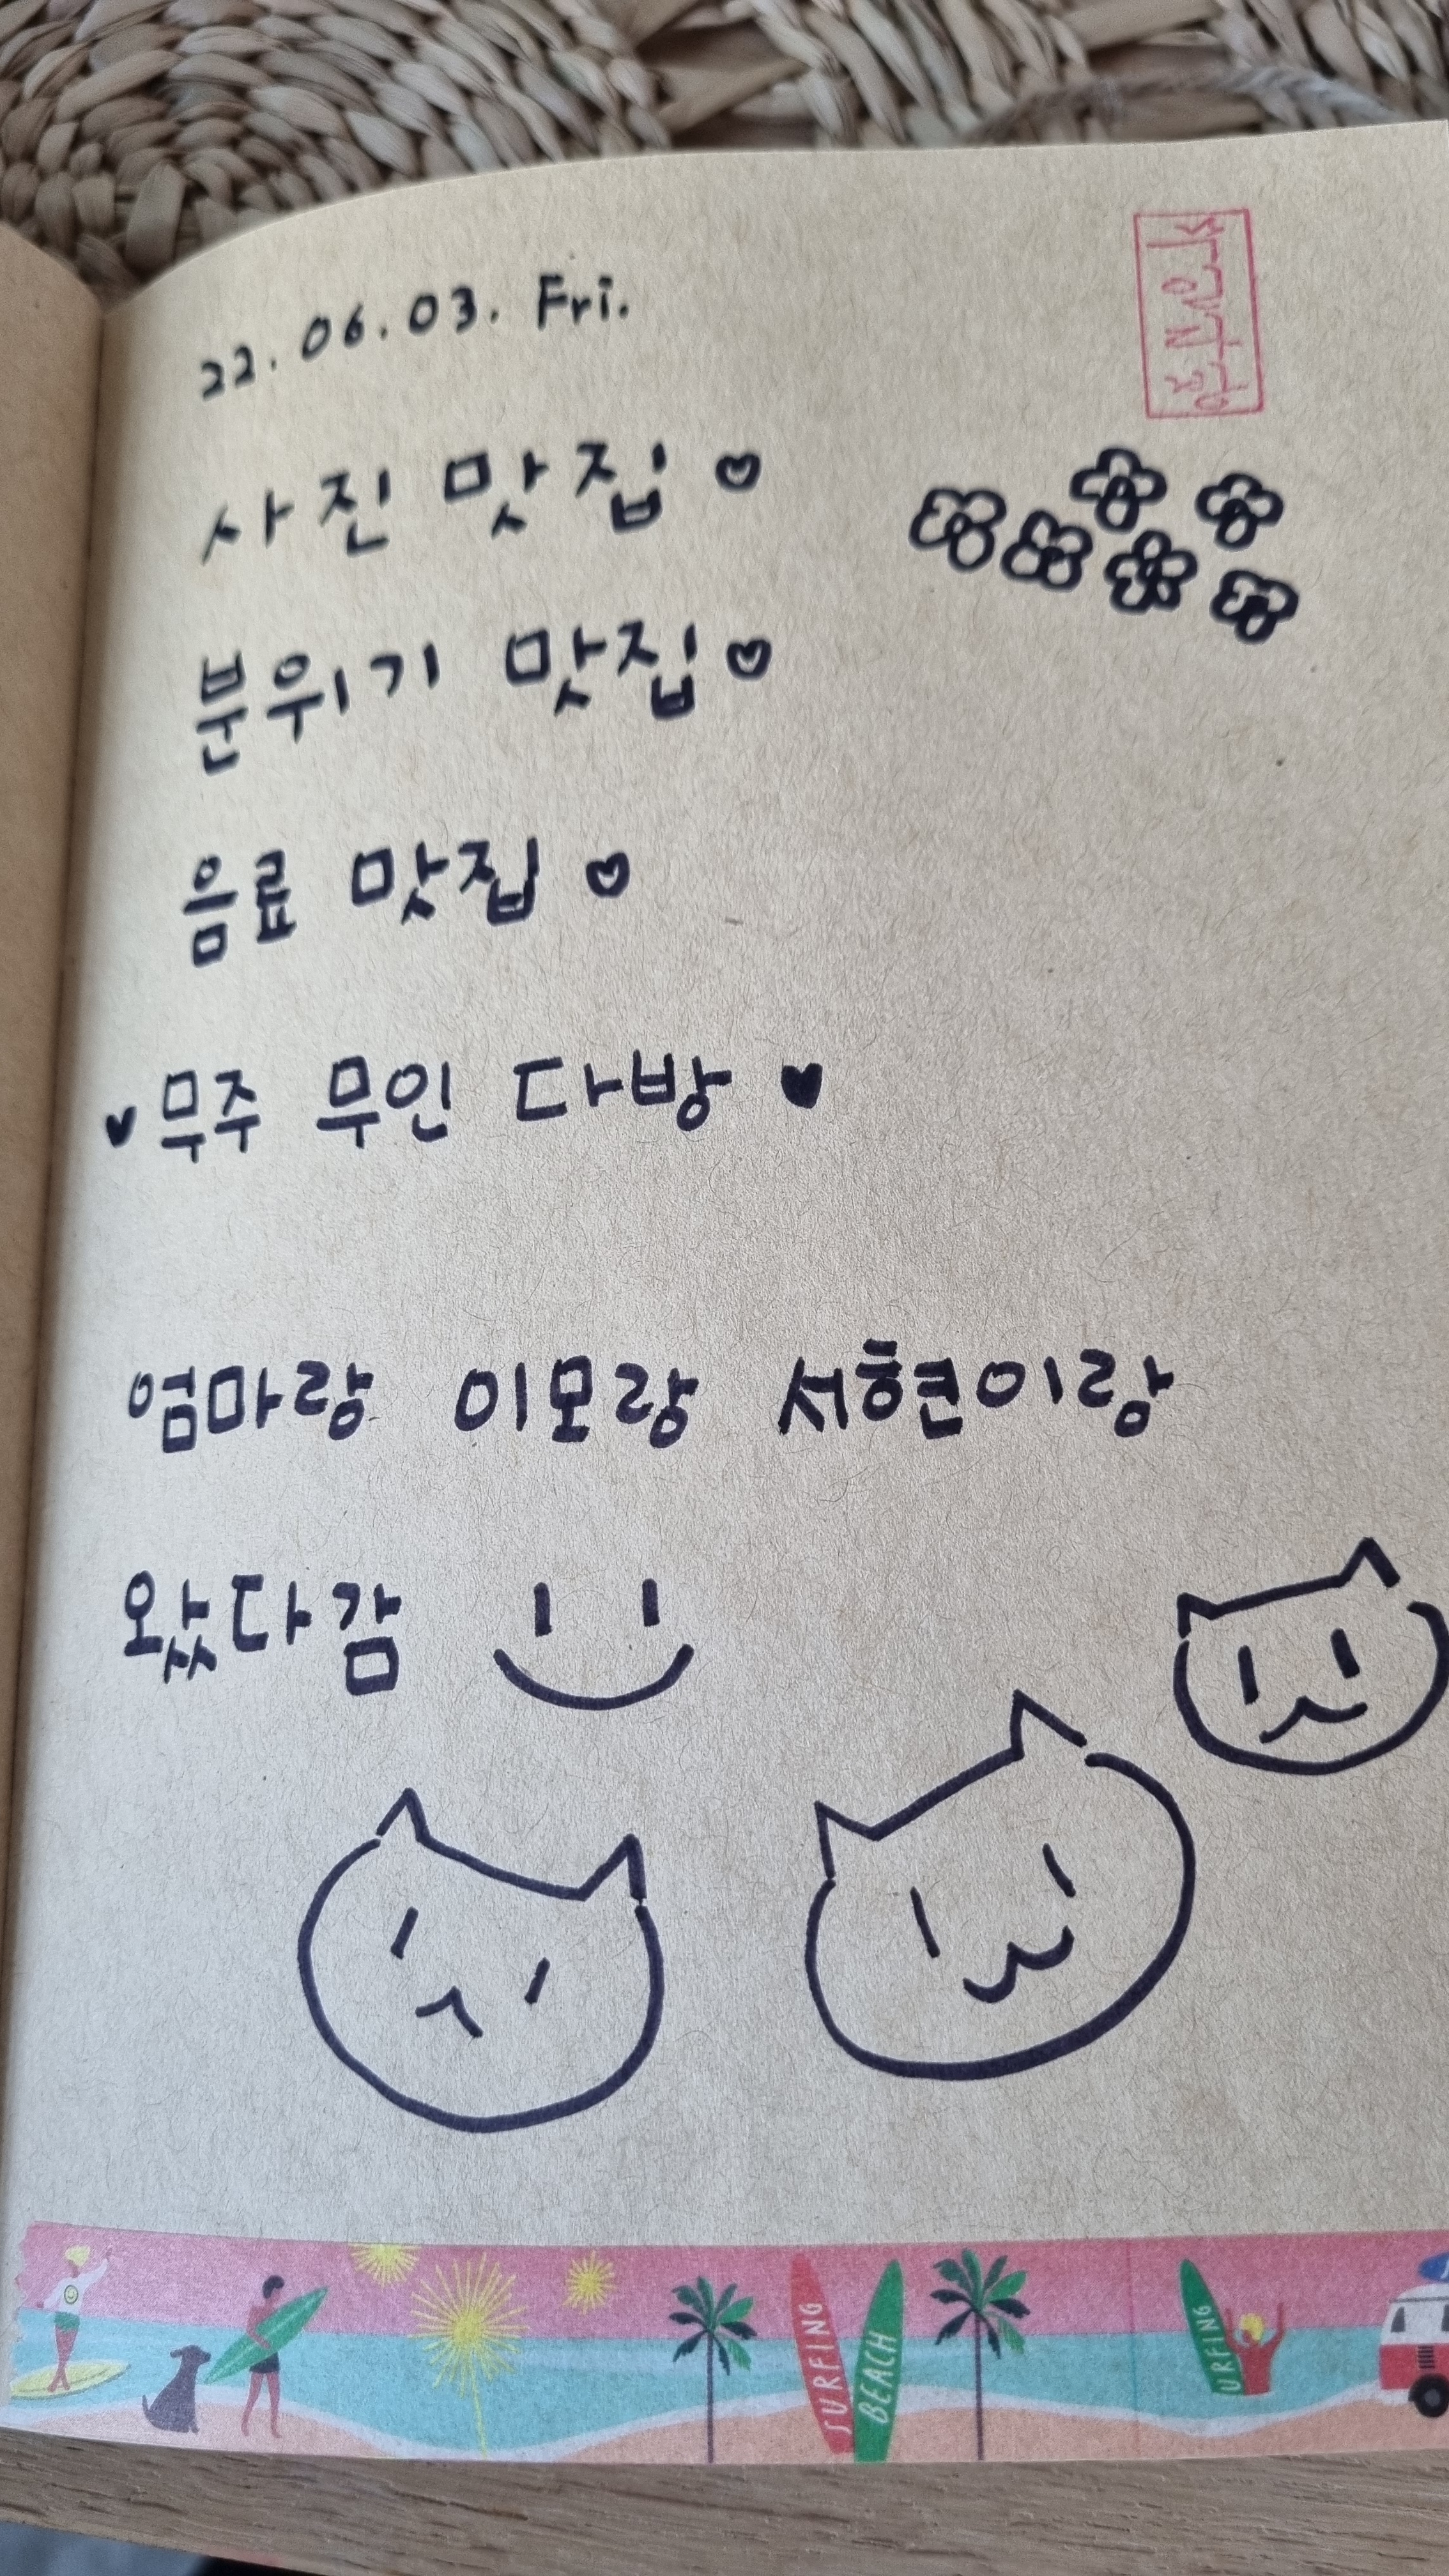 22. 06. 03. Fri.
사진 맛집 ♡
분위기 맛집 ♡
음료 맛집 ♡
♥ 무주 무인 다방 ♥
엄마랑 이모랑 서현이랑
왔다감
SURFING
BEACH
URFING